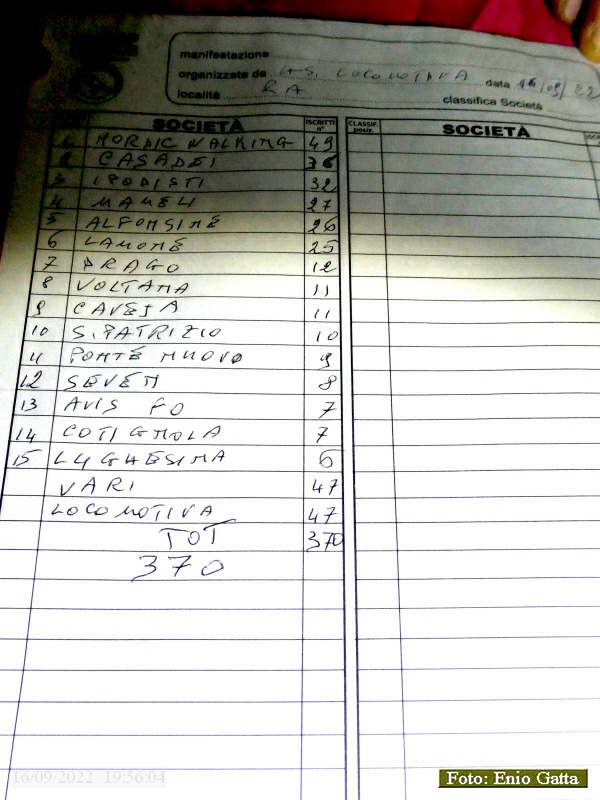 manifestazione
organizzata da G.S. LOCOMOTIVA data 16/09/22
località RA classifica Società
SOCIETÀ ISCRITTI n° CLASSIF. posiz. SOCIETÀ
1 NORDIC WALKING 49
2 CASADEI 36
3 IPODISTI 32
4 MAMELI 27
5 ALFONSINE 26
6 LAMONE 25
7 DRAGO 12
8 VOLTANA 11
9 CAVEJA 11
10 S. PATRIZIO 10
11 PONTE NUOVO 9
12 SEVEN 8
13 AVIS FO 7
14 COTIGNOLA 7
15 LUGHESINA 6
VARI 47
LOCOMOTIVA 47
TOT 370
370
16/09/2022 19:56:04
Foto: Enio Gatta